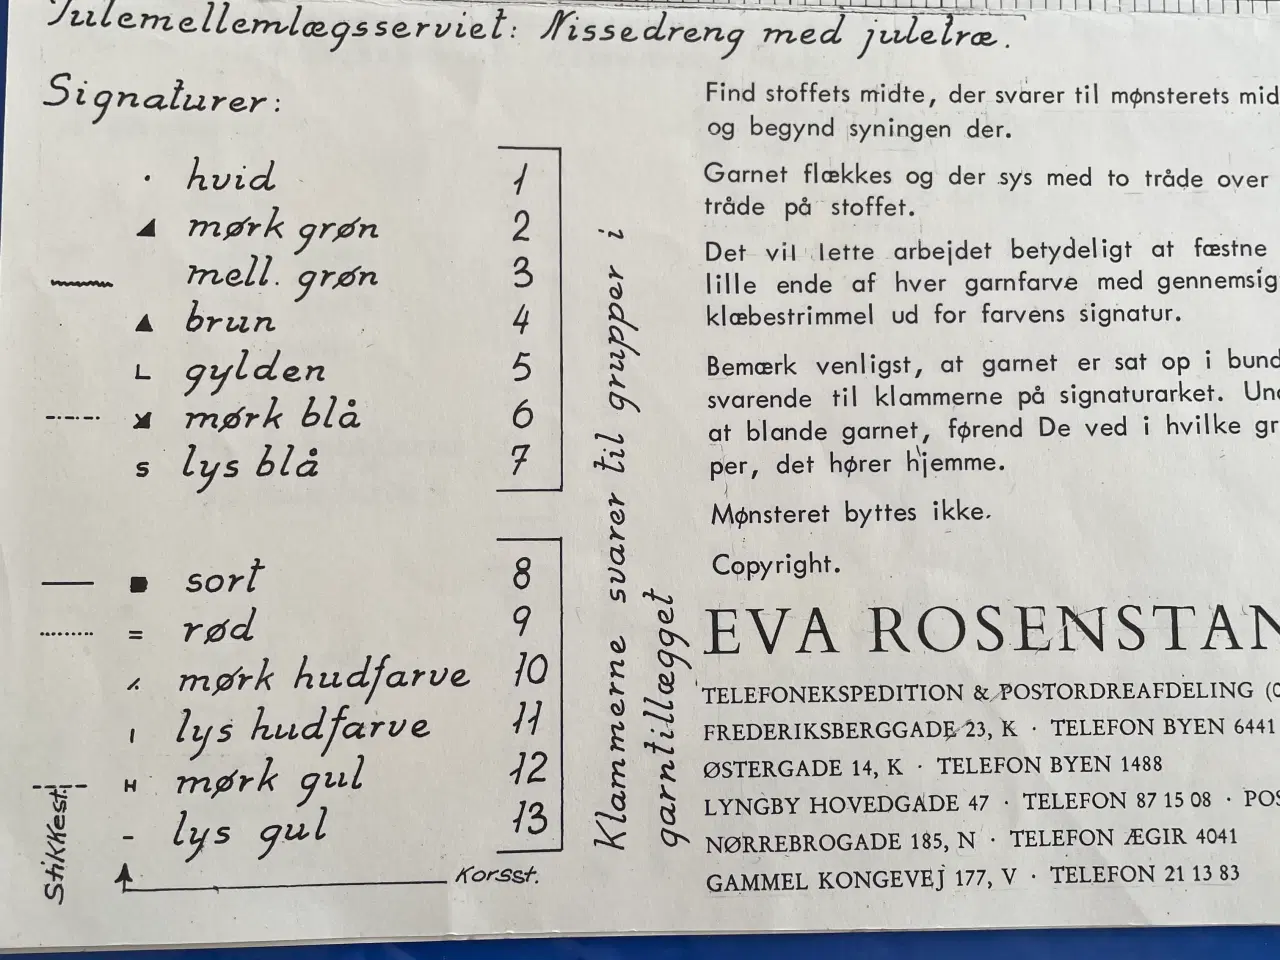 Julemellemlægsserviet: Nissedreng med juletræ.
Signaturer:
hvid 1
mørk grøn 2
mell. grøn 3
brun 4
L gylden 5
mørk blå 6
s lys blå 7
sort 8
= rød 9
mørk hudfarve 10
ı lys hudfarve 11
H mørk gul 12
- lys gul 13
Stikkest.
Korsst.
Klammerne svarer til grupper i
garntillægget
Find stoffets midte, der svarer til mønsterets mid
og begynd syningen der.
Garnet flækkes og der sys med to tråde over
tråde på stoffet.
Det vil lette arbejdet betydeligt at fæstne
lille ende af hver garnfarve med gennemsig
klæbestrimmel ud for farvens signatur.
Bemærk venligst, at garnet er sat op i bund
svarende til klammerne på signaturarket. Und
at blande garnet, førend De ved i hvilke gr
per, det hører hjemme.
Mønsteret byttes ikke.
Copyright.
EVA ROSENSTAN
TELEFONEKSPEDITION & POSTORDREAFDELING (
FREDERIKSBERGGADE 23, K · TELEFON BYEN 6441
ØSTERGADE 14, K · TELEFON BYEN 1488
LYNGBY HOVEDGADE 47 · TELEFON 87 15 08 · POS
NØRREBROGADE 185, N · TELEFON ÆGIR 4041
GAMMEL KONGEVEJ 177, V · TELEFON 21 13 83